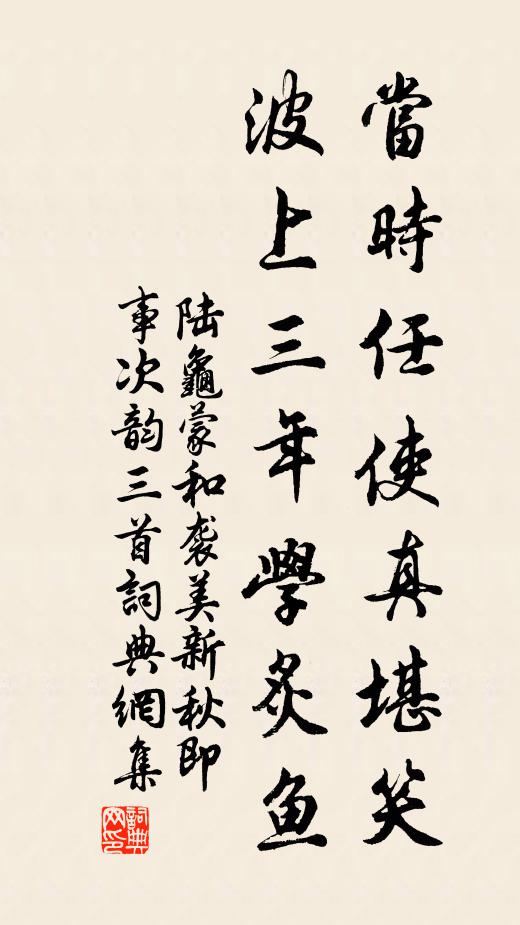 當時任使真堪笑
波上三年學炙魚
陆龜蒙和袭美新秋即
事次韵三首詞典網集
詞典网印